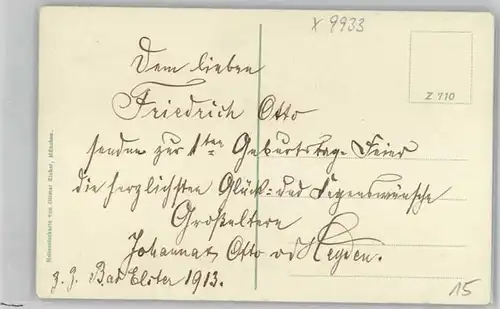 X 9933
Dem lieben
Friedrich Otto
Z 710
senden zur 1ten Geburtstags-Feier
die herzlichsten Glück- und Segenswünsche
Großeltern
Johanna u. Otto vd Heyden.
z. Z. Bad Elster 1913.
15